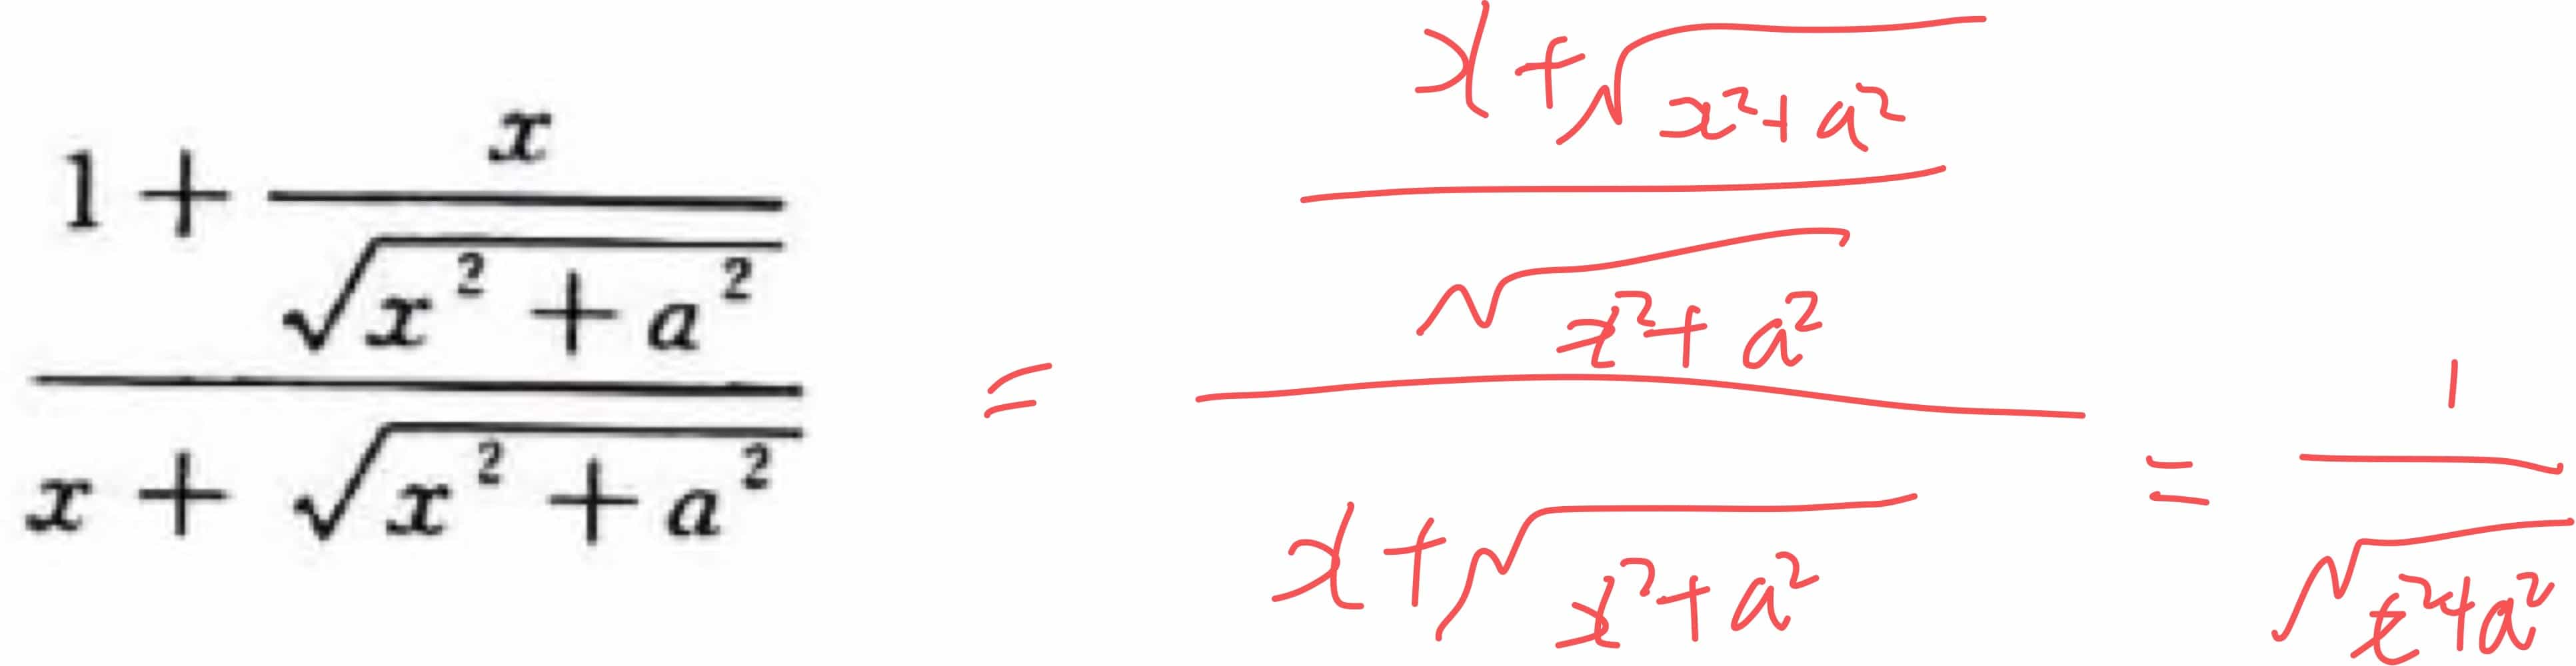 \frac{1 + \frac{x}{\sqrt{x^2 + a^2}}}{x + \sqrt{x^2 + a^2}} = \frac{\frac{x + \sqrt{x^2 + a^2}}{\sqrt{x^2 + a^2}}}{x + \sqrt{x^2 + a^2}} = \frac{1}{\sqrt{x^2 + a^2}}